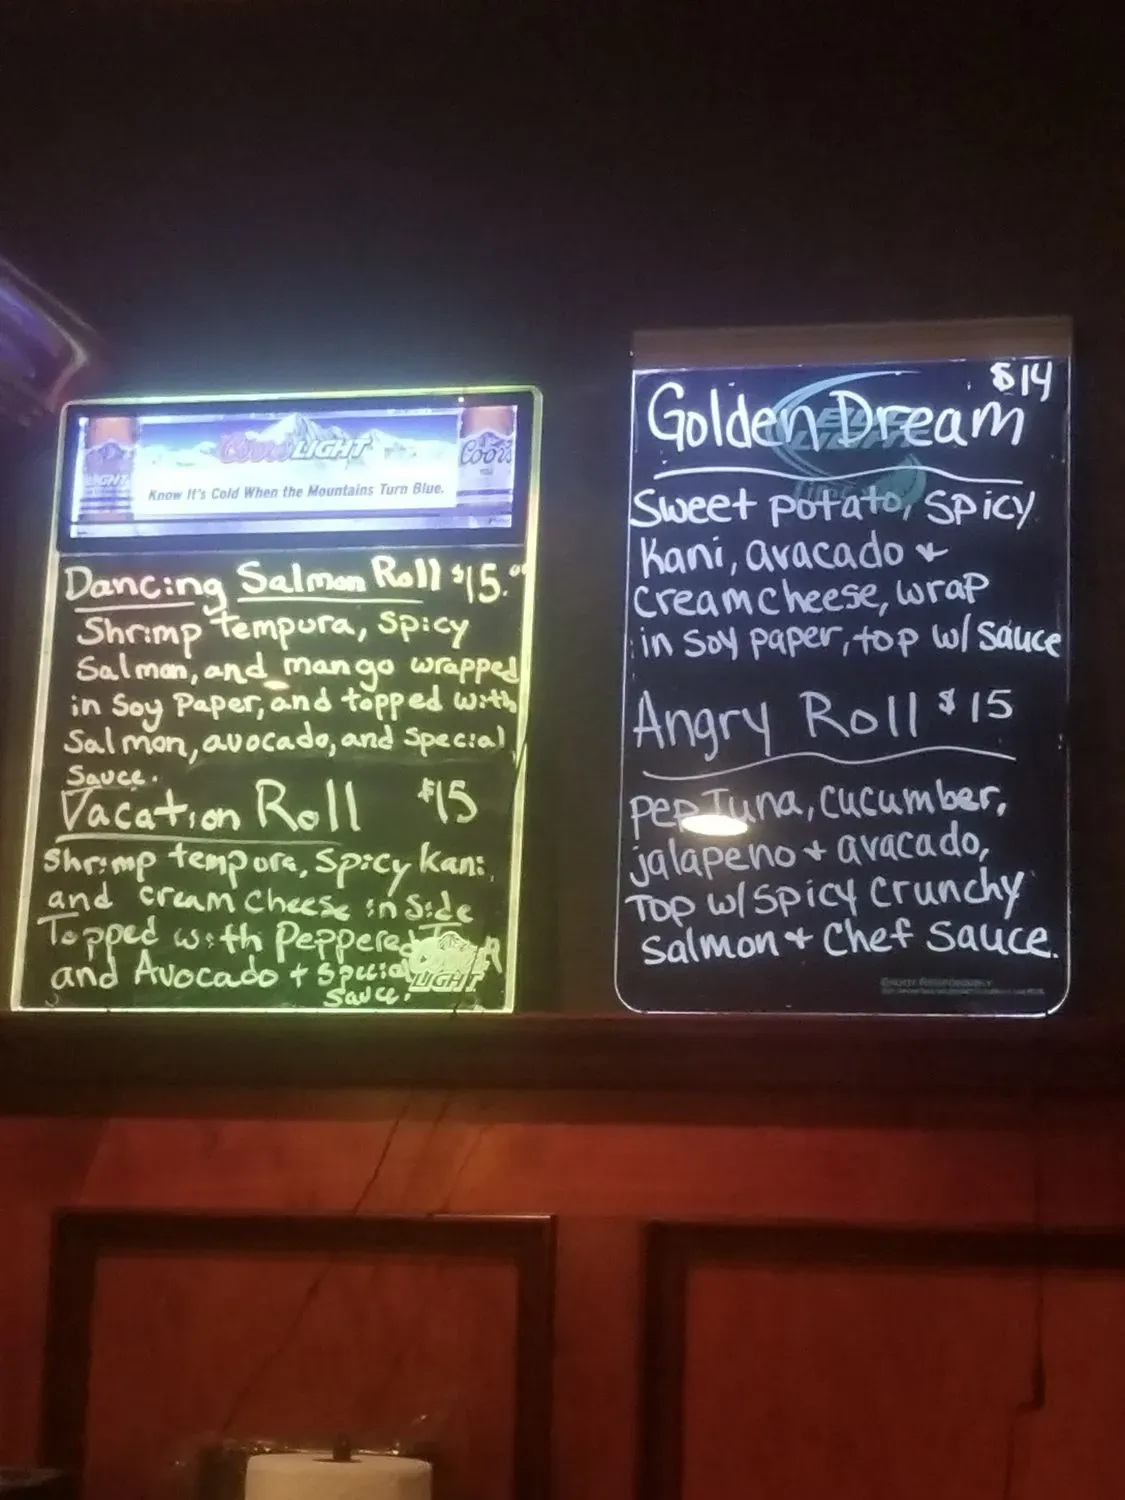 Coors LIGHT
Coors
LIGHT
Know It's Cold When the Mountains Turn Blue.
Dancing Salmon Roll $15.00
Shrimp tempura, spicy
Salmon, and mango wrapped
in Soy Paper, and topped with
Salmon, avocado, and special
Sauce.
Vacation Roll $15
Shrimp tempura, Spicy Kani,
and cream cheese inside
Topped with Peppered
and Avocado + special
Sauce.
LIGHT
$14
Golden Dream
Sweet potato, spicy
Kani, avacado +
cream cheese, wrap
in soy paper, top w/ sauce
Angry Roll $15
pep Tuna, cucumber,
jalapeno + avacado,
TOP w/ spicy crunchy
salmon + chef sauce.